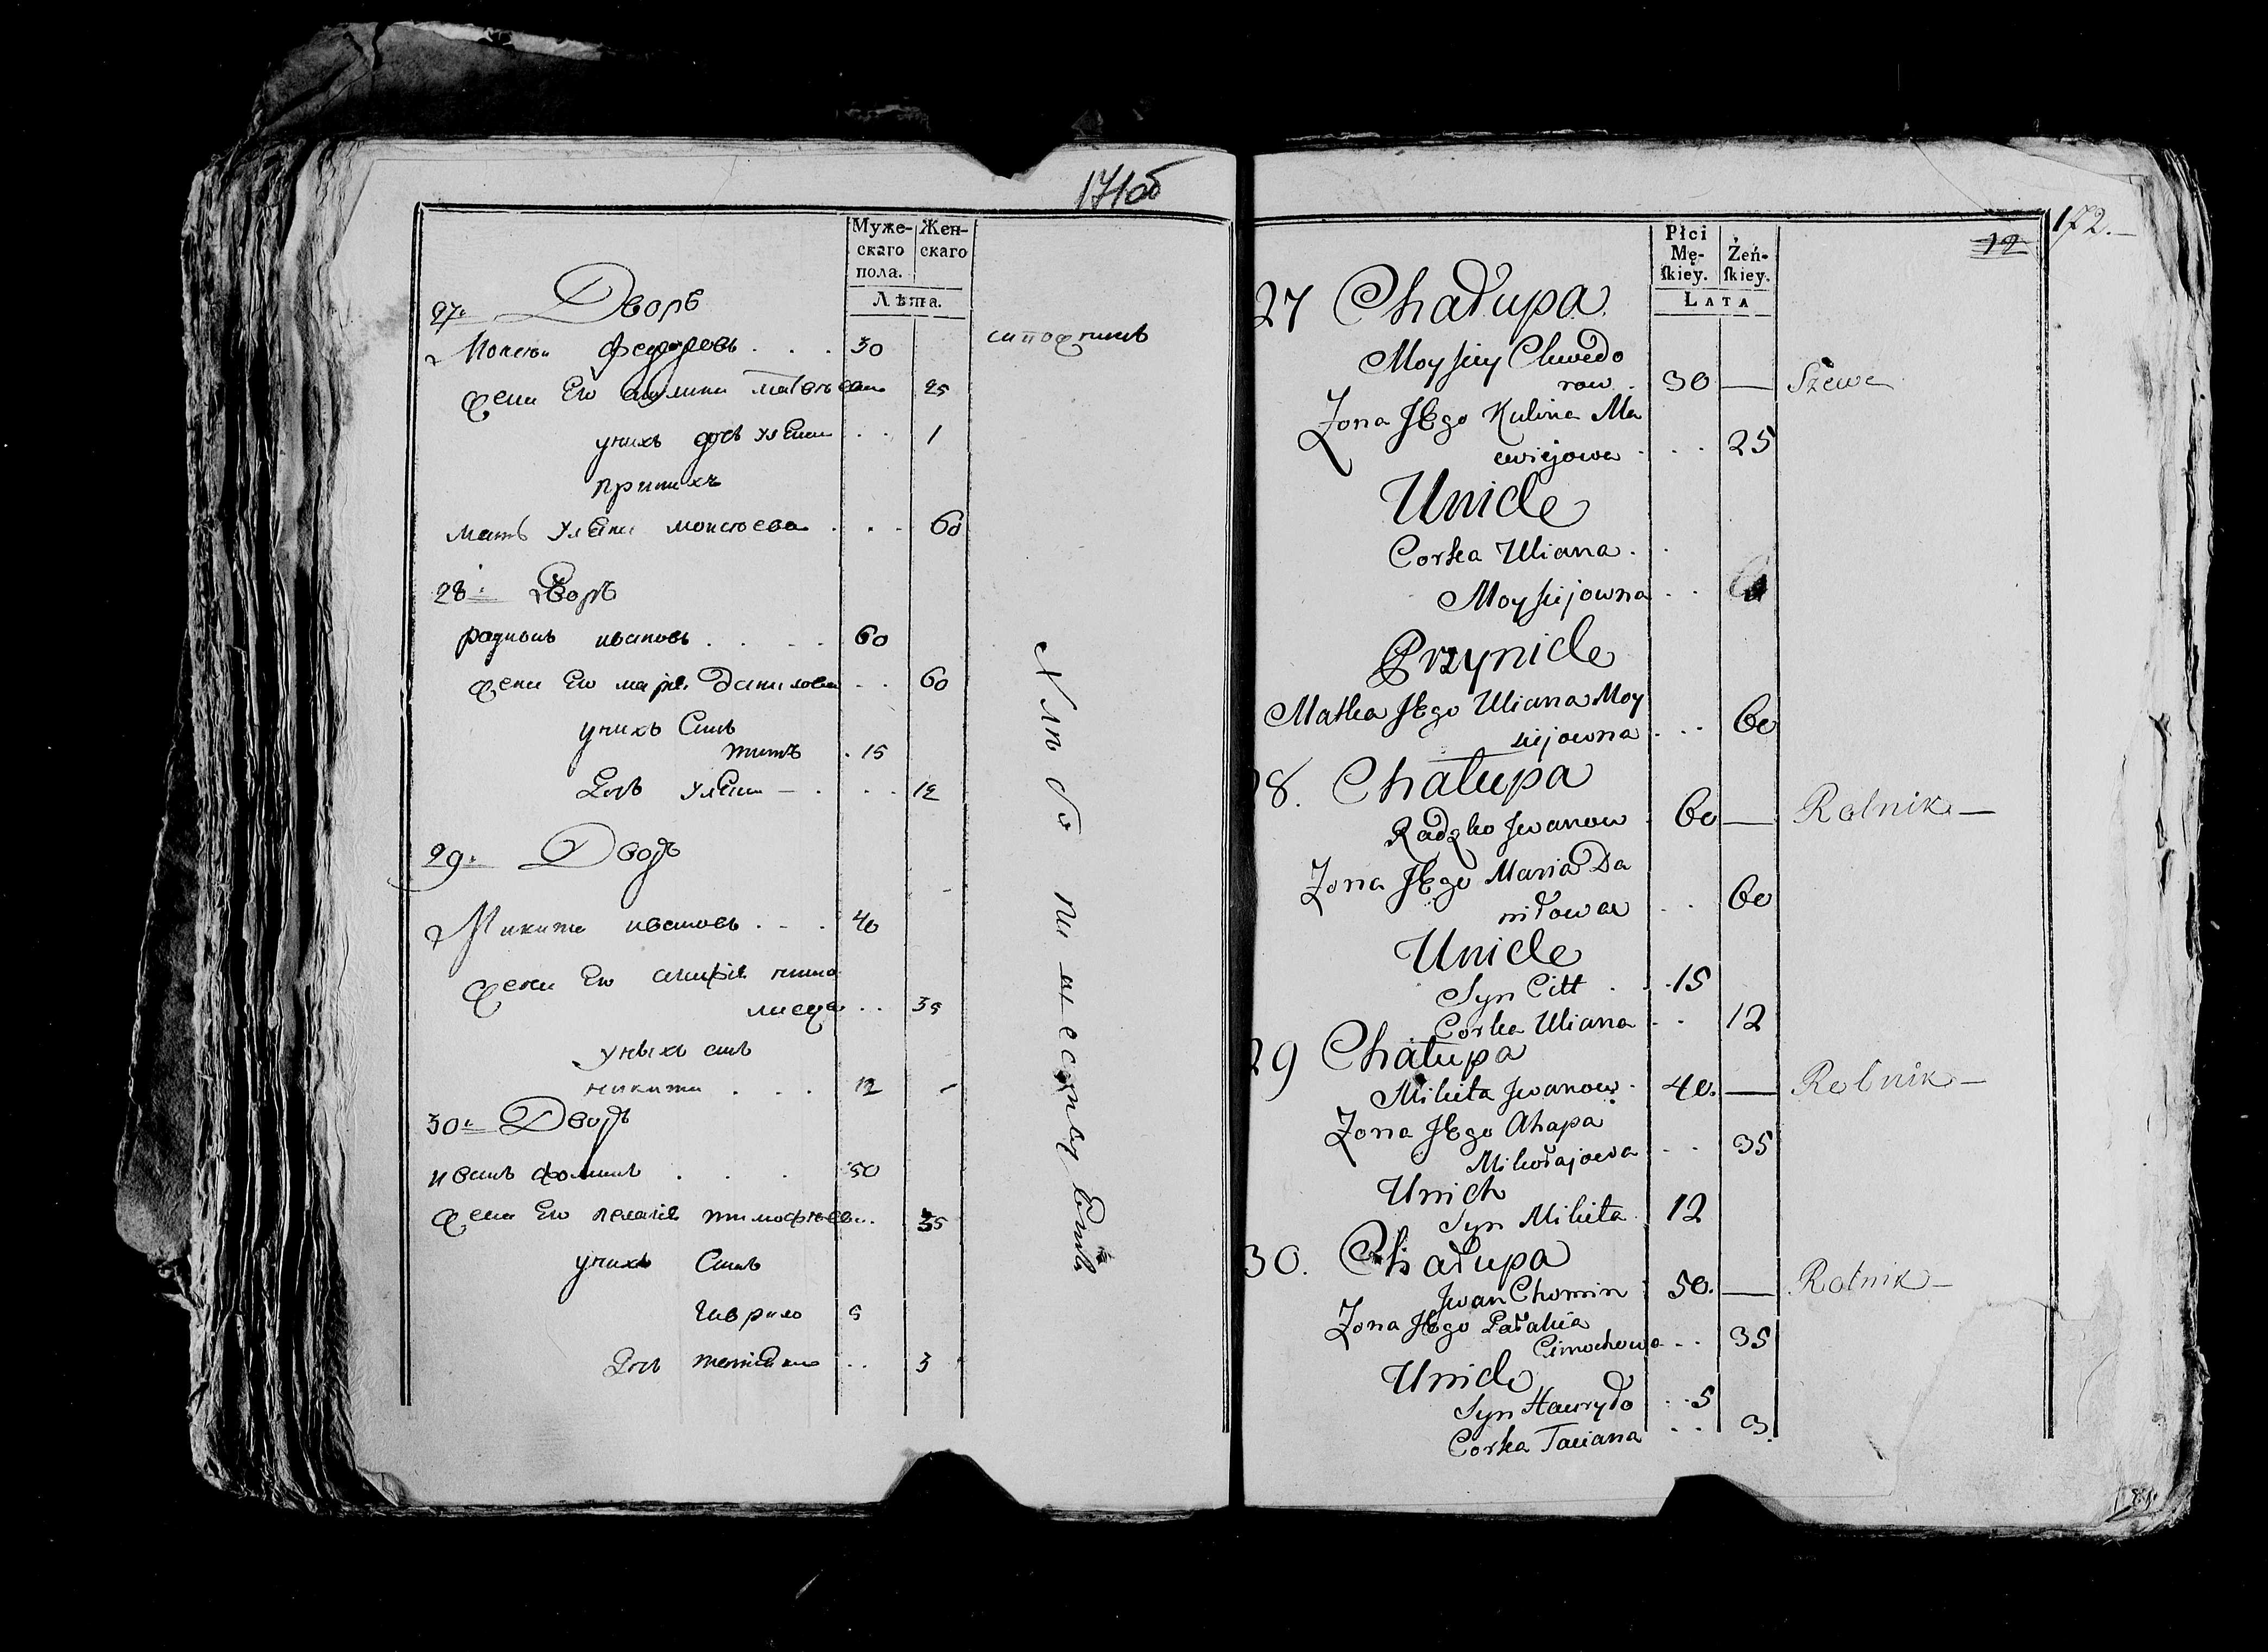 171об
Муже-
скаго
пола.
Жен-
скаго
Лѣта.
27. Дворъ
Моисей Федоровъ . . . 30
сапожникъ
жена Его акулина матвѣева 25
унихъ дочь улѣяна . . 1
принихъ
мать улѣяна моисѣева . . . 60
28. Дворъ
радионъ ивановъ . . . . 60
жена Его марѣя Данилова . . 60
унихъ Синъ
титъ . 15
Дочь улѣяна . . . 12
29. Дворъ
Микита ивановъ . . . 40
жена Его агафѣя
. . 35
уныхъ синъ
никита . . . 12
30. Дворъ
иванъ фоминъ . . . 50
жена Его пелагѣя тимофѣева . . 35
унихъ Синъ
Гаврило 5
Дочь татиѣяна . . 3
Хлѣбопашественныя
172.
12
Płci
Mę-
skiey.
Żeń-
skiey.
LATA
27 Chałupa
Moysiey Chwedo
row . 30 — Szewc
Zona JEgo Kulina Ma
ewiejowa . . . 25
Unich
Corka Uliana . .
Moysiejowna . .
Przynich
Matka JEgo Uliana Moy
siejowna . . . 60
28. Chałupa
Radzko Jwanow . 60 — Rolnik —
Zona JEgo Maria Da
niłowa . . 60
Unich
Syn Citt . . 15
Corka Uliana . . 12
29 Chałupa
Mikita Jwanow . 40. — Rolnik —
Zona JEgo Ahapa
Mikołajowa . . 35
Unich
Syn Mikita 12
30. Chałupa
Jwan Chomin 50. — Rolnik —
Zona JEgo Pałahia
Cimochowa . . 35
Unich
Syn Hawryło . . 5
Corka Taciana . . 3.